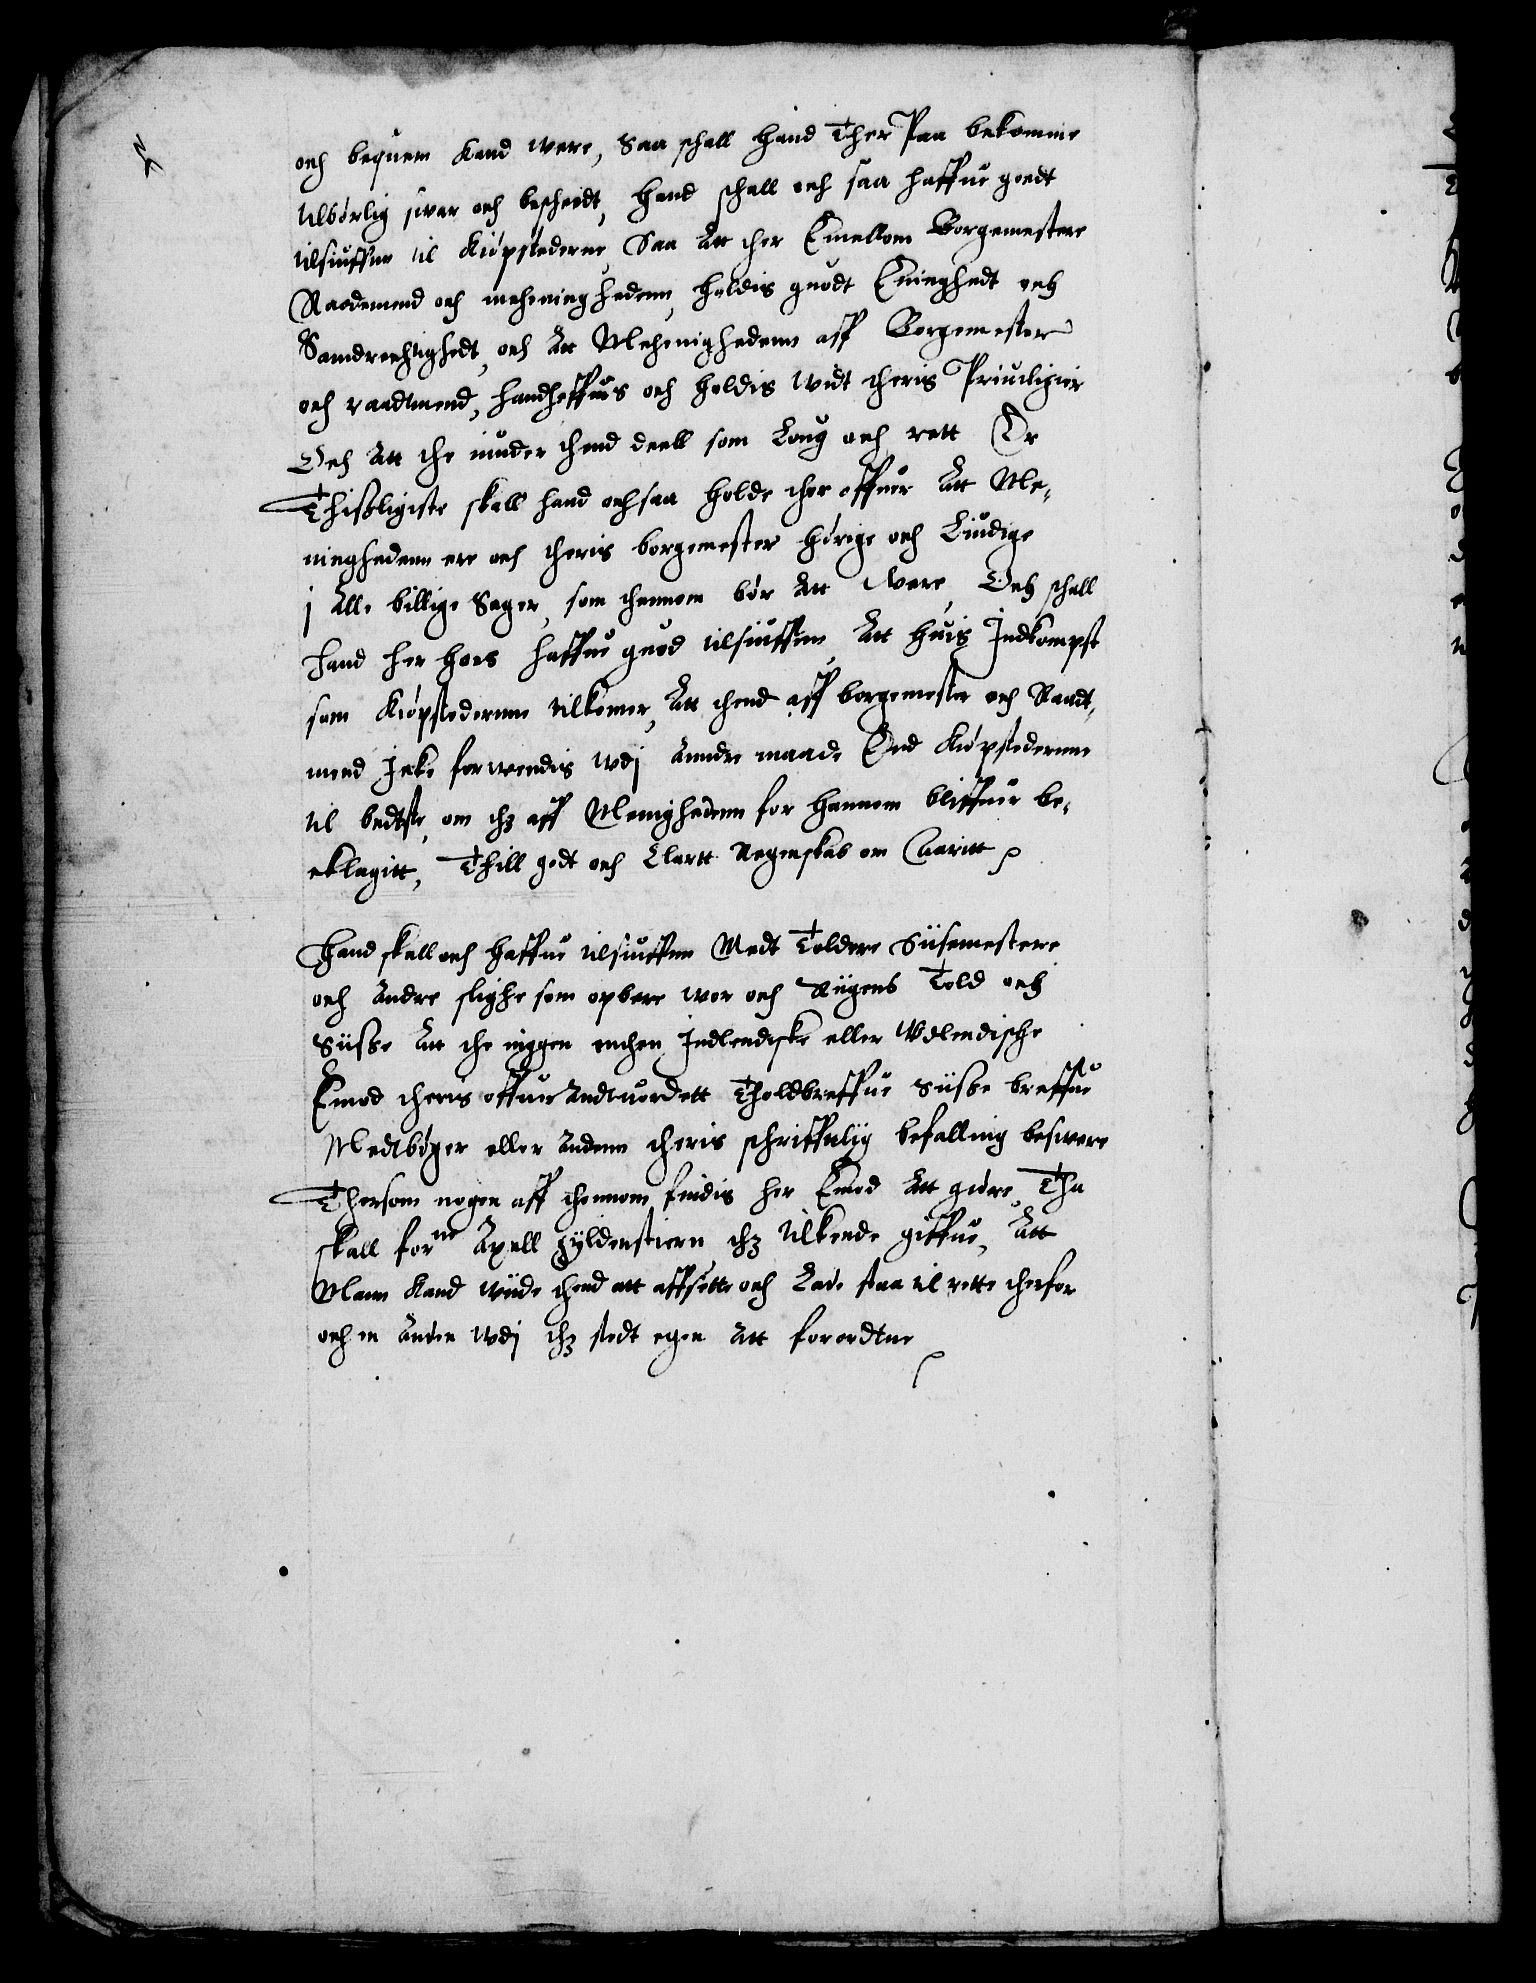 och bequem kand were, Saa schall hand Ther Paa bekomme
tilbørlig swar och bescheedt, Hand schall och saa haffue goedt
tilsiuffnn til Kiøpstederne Saa Att ther Emellom Borgemestere
Raademend och meheninghedenn, holdis guodt Eninghedt och
Samdrechtighedt, och Att Mehenighedenn aff Borgemester
och raadtmend, handheffues och holdis widt theris Priuiligier
Och Att the niuder thend deell som Loug och rett Er
Thisligiste skall hand ochsaa holde ther offuer Att Me,
ninghedenn ere och theris borgemester hørige och Liudige
j Alle billige Sager, som thennom bør Att were, Och schall
hand her hoes haffue guod tilsiuffnn Att huis Indkompst
som Kiøpstedernne tilkomer, Att thend aff borgemester och Raadt,
mend Icke forwendis wdj Anndre maade End Kiøpstedernne
til bedtste, om thz aff Menighedenn for hannom bliffuer be,
cklagitt, Thill godt och Klartt Regenskab om Aaritt
Hand skall och haffue tilsiuffnn Medt Toldere Siisemestere
och Andre slighe som opbere wor och Riigens Told och
Siisse Att the inggen enchen Indlendiske eller Wdlendische
Emod theris offuer Andtuordett Tholdbreffue Siisse breffue
Medtbøger eller Andenn theris schrifftliig befalling beswere
Thersom nogen aff thennom findis her Emod Att giøre, Tha
skall forne Axell Gyldenstiern thz tilkende giffue, Att
Mann Kand wiide thend att affsette och Lade staa til rette therfor
och en Anden wdj thz stedt egen Att forordtne